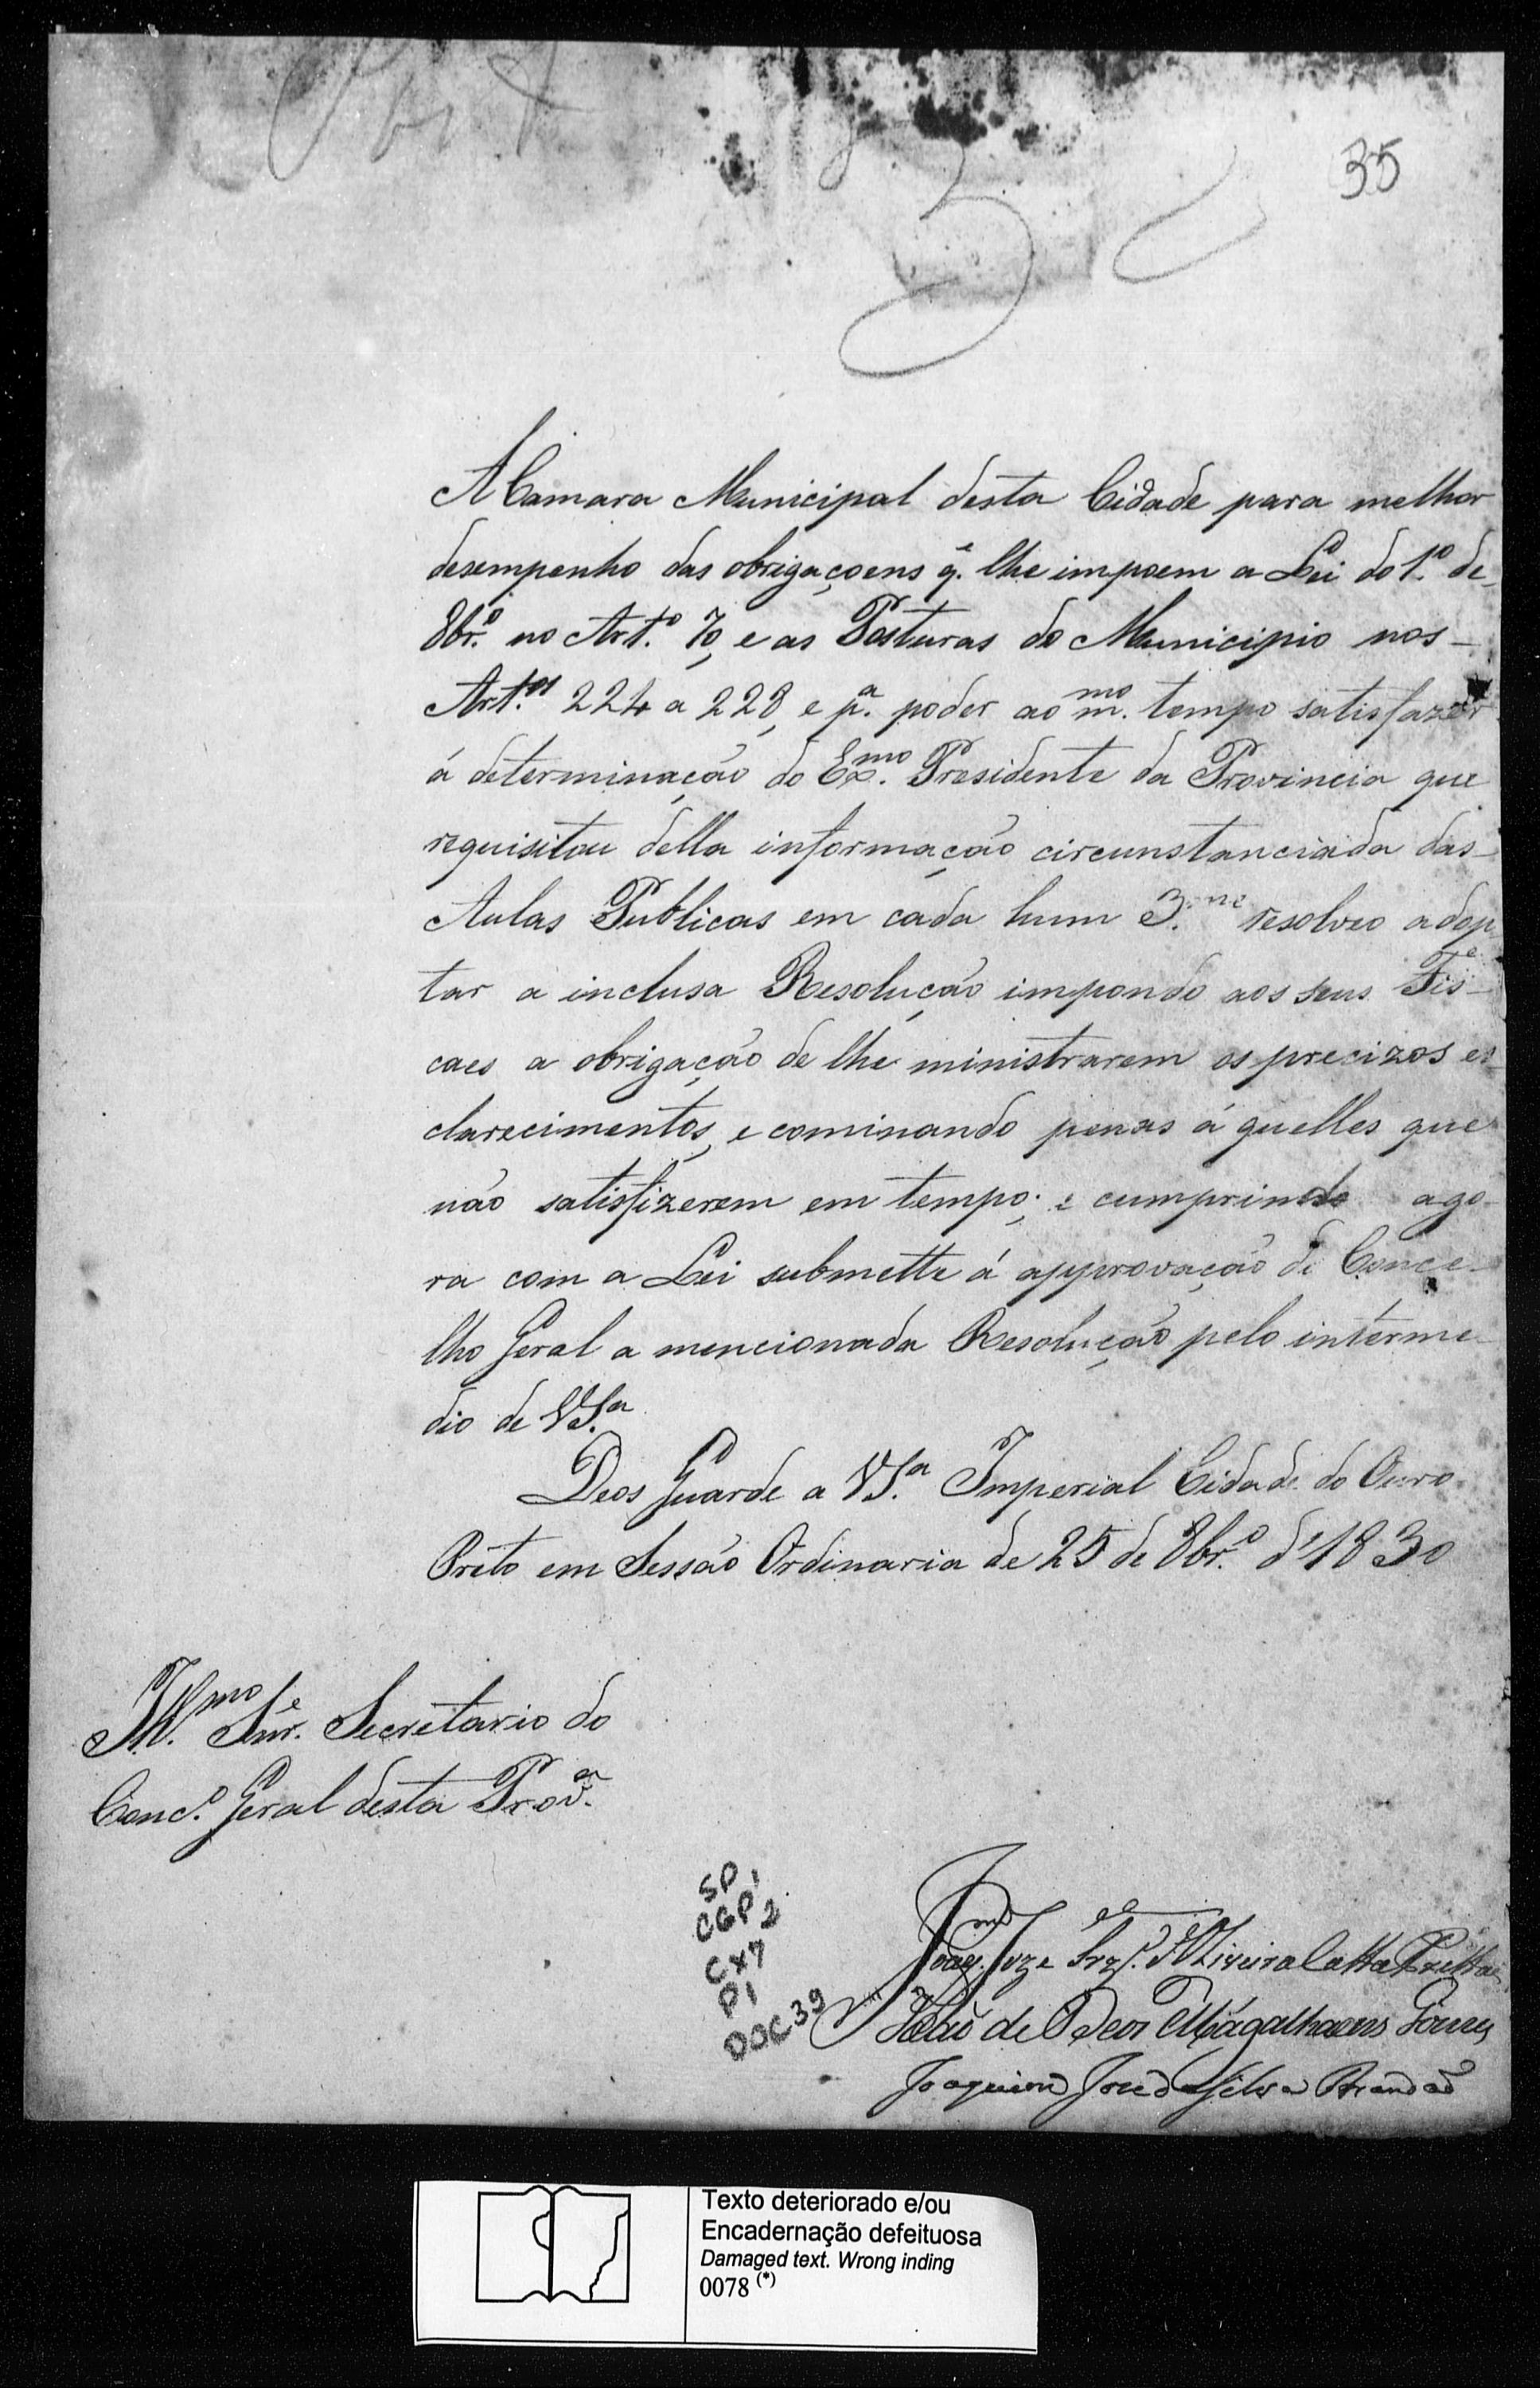 35
A Camara Municipal desta Cidade para melhor
desempenho das obrigaçoens q̃. lhe impoem a Lei do 1.º de
8br.º no Art.º 70, e as Posturas do Municipio nos
Art.ºs 224 a 228, e p.ª poder ao m.mo tempo satisfazer
á determinação do Ex.mo Presidente da Provincia que
requisitou della informação circunstanciada das
Aulas Publicas em cada hum 3.ne resolveo adop
tar a inclusa Resolução impondo aos seus Fis
caes a obrigação de lhe ministrarem os precizos es
clarecimentos, e cominando penas á quelles que
não satisfizerem em tempo; e cumprindo ago
ra com a Lei submette á approvação do Conce
lho Geral a mencionada Resolução pelo interme
dio de VS.ª
Deos Guarde a VS.ª Imperial Cidade do Ouro
Preto em Sessão Ordinaria de 25 de 8br.º d'1830
Ill.mo Snr. Secretario do
Conc.º Geral desta Prov.ª
SP 1
CGP 2
CX7
P1
DOC 39
Joaq.m Joze Frz. d'Oliveira Catta Pretta
João de Deos Magalhaens Gomes
Joaquim José da Silva Brandaõ
Texto deteriorado e/ou
Encadernação defeituosa
Damaged text. Wrong inding
0078 (*)